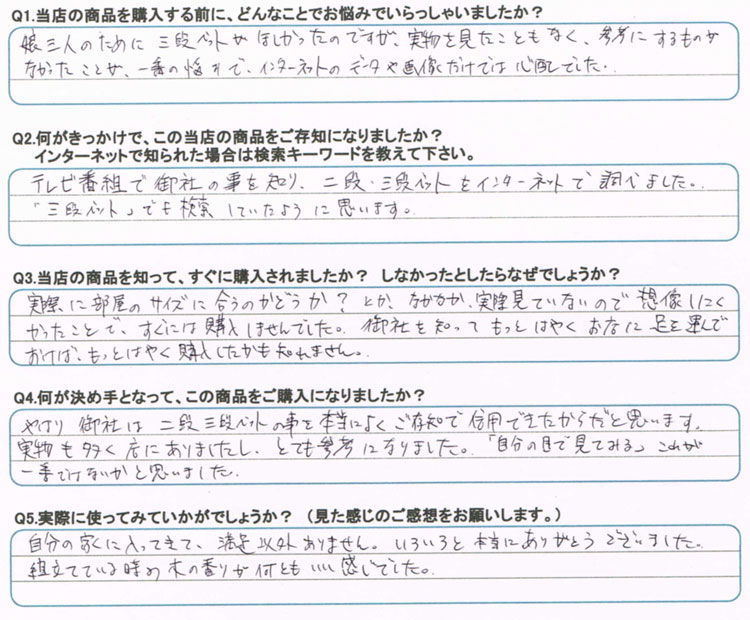 Q1.当店の商品を購入する前に、どんなことでお悩みでいらっしゃいましたか？
娘三人のために三段ベットがほしかったのですが、実物を見たこともなく、参考にするものが
なかったことが、一番の悩みで、インターネットのデータや画像だけでは心配でした。
Q2.何がきっかけで、この当店の商品をご存知になりましたか？
インターネットで知られた場合は検索キーワードを教えて下さい。
テレビ番組で御社の事を知り、二段・三段ベットをインターネットで調べました。
「三段ベット」でも検索していたように思います。
Q3.当店の商品を知って、すぐに購入されましたか？ しなかったとしたらなぜでしょうか？
実際に部屋のサイズに合うのかどうか？とか、なかなか、実際見ていないので想像しにく
かったことで、すぐには購入しませんでした。御社を知ってもっとはやくお店に足を運んで
おけば、もっとはやく購入したかも知れません。
Q4.何が決め手となって、この商品をご購入になりましたか？
やはり御社は二段三段ベットの事を本当によくご存知で信用できたからだと思います。
実物も多く店にありましたし、とても参考になりました。「自分の目で見てみる」これが
一番ではないかと思いました。
Q5.実際に使ってみていかがでしょうか？ （見た感じのご感想をお願いします。）
自分の家に入ってきて、満足以外ありません。いろいろと本当にありがとうございました。
組立てている時の木の香りが何ともいい感じでした。